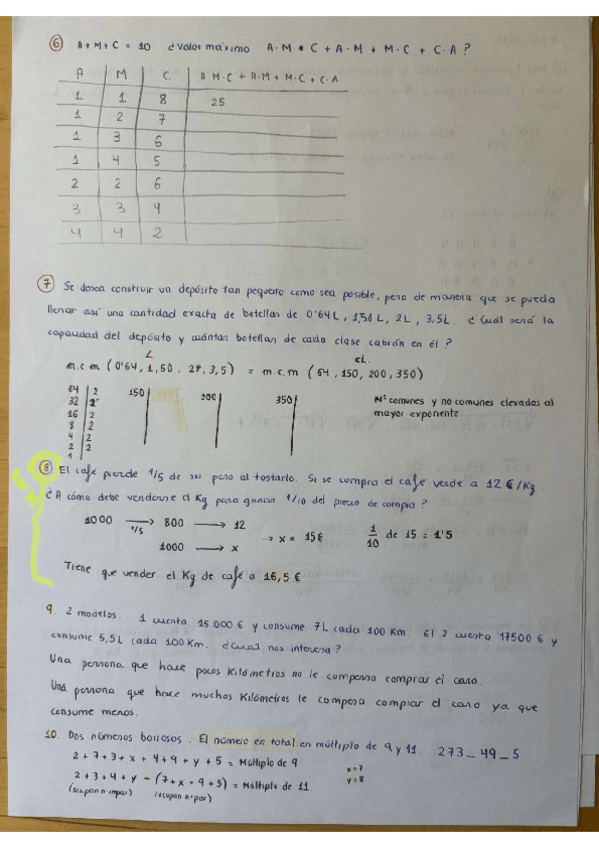 6 A+M+C = 10 ¿Valor máximo A·M·C + A·M + M·C + C·A?
A M C A·M·C + A·M + M·C + C·A
1 1 8 25
1 2 7
1 3 6
1 4 5
2 2 6
3 3 4
4 4 2
7 Se desea construir un depósito tan pequeño como sea posible, pero de manera que se pueda
llenar así una cantidad exacta de botellas de 0'64 L, 1,50 L, 2L, 3.5L. ¿Cuál será la
capacidad del depósito y cuántas botellas de cada clase cabrán en él?
L cL
m.c.m (0'64, 1,50, 2, 3,5) = m.c.m (64, 150, 200, 350)
64 2 150 200 350 Nº comunes y no comunes elevados al
32 2 mayor exponente
16 2
8 2
4 2
2 2
1
8 El café pierde 1/5 de su peso al tostarlo. Si se compra el café verde a 12 €/Kg.
¿A cómo debe venderse el Kg para ganar 1/10 del precio de compra?
1000 → 1/5 800 → 12
1000 → x → x = 15€ 1/10 de 15 = 1'5
Tiene que vender el Kg de café a 16,5 €
9. 2 modelos. 1 cuesta 15 000 € y consume 7L cada 100 Km. El 2 cuesta 17500 € y
consume 5,5L cada 100 Km. ¿Cuál nos interesa?
Una persona que hace pocos Kilómetros no le compensa comprar el caro.
Una persona que hace muchos Kilómetros le compesa comprar el caro ya que
consume menos.
10. Dos números borrosos. El número en total en múltiplo de 9 y 11. 273_49_5
2+7+3+x+4+9+y+5 = Múltiplo de 9 x=7
2+3+4+y - (7+x+9+5) = Múltiplo de 11. y=8
(ocupan nº impar) (ocupan nº par)